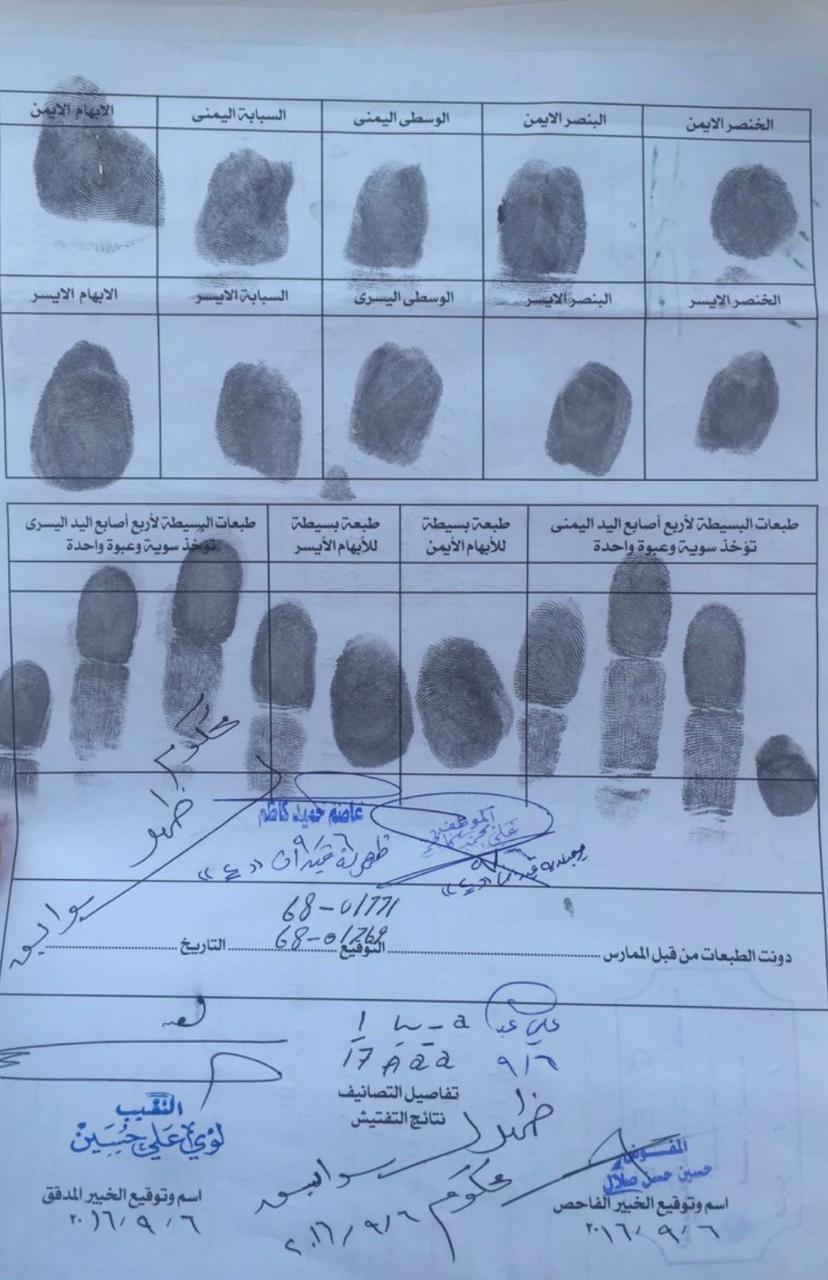 الخنصر الايمن البنصر الايمن الوسطى اليمنى السبابة اليمنى الابهام الايمن
الخنصر الايسر البنصر الايسر الوسطى اليسرى السبابة الايسر الابهام الايسر
طبعات البسيطة لأربع أصابع اليد اليمنى طبعة بسيطة طبعة بسيطة طبعات البسيطة لأربع أصابع اليد اليسرى
تؤخذ سوية وعبوة واحدة للأبهام الأيمن للأبهام الأيسر تؤخذ سوية وعبوة واحدة
محكوم
عاصم حميد كاظم
٩/٦
68-01771
68-01768
سوابق
دونت الطبعات من قبل الممارس التوقيع التاريخ
علي عبد
٩/٦ 17 A a a
تفاصيل التصانيف
نتائج التفتيش
النقيب
لؤي علي حسين
المفوض
حسين حسن صلال
سوابق
محكوم
اسم وتوقيع الخبير الفاحص اسم وتوقيع الخبير المدقق
٢٠١٦/٩/٦ ٢٠١٦/٩/٦ ٢٠١٦/٩/٦